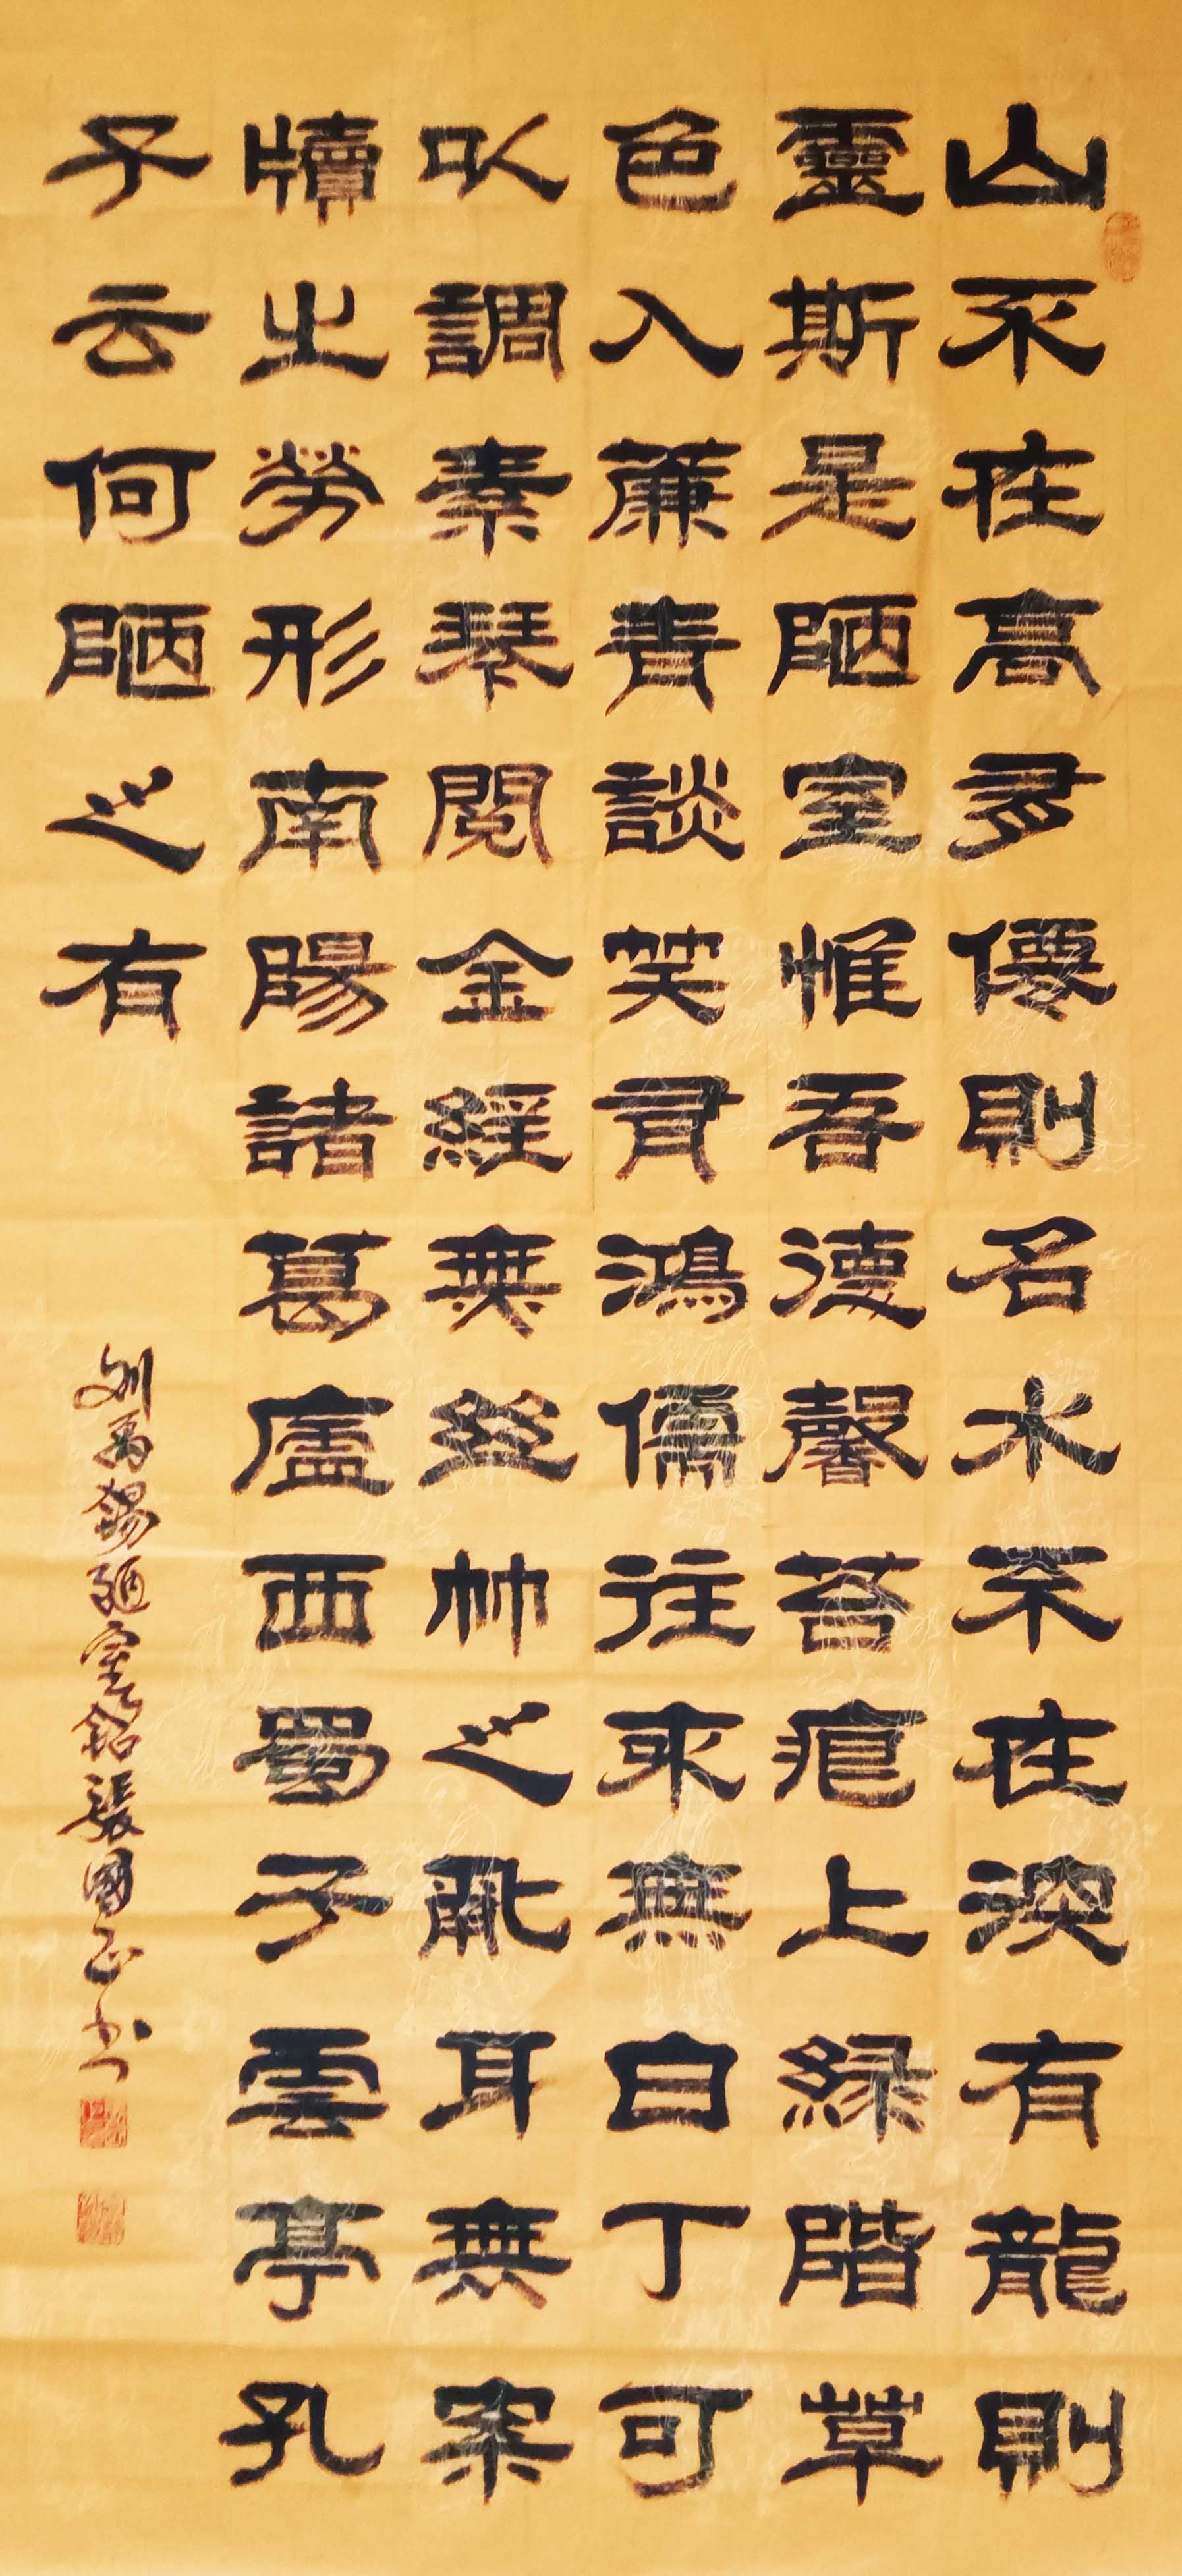 山不在高有僊則名水不在深有龍則
靈斯是陋室惟吾德馨苔痕上綠階草
色入簾青談笑有鴻儒往來無白丁可
以調素琴閱金經無絲竹之亂耳無案
牘之勞形南陽諸葛廬西蜀子雲亭孔
子云何陋之有
刘禹錫陋室銘張國正书